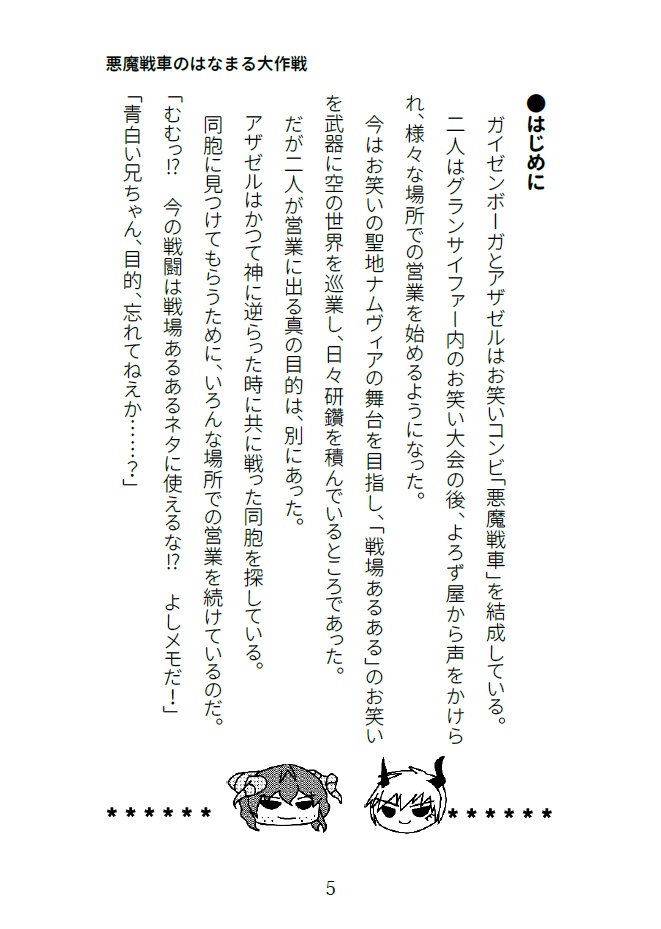 悪魔戦車のはなまる大作戦
●はじめに
ガイゼンボーガとアザゼルはお笑いコンビ「悪魔戦車」を結成している。
二人はグランサイファー内のお笑い大会の後、よろず屋から声をかけら
れ、様々な場所での営業を始めるようになった。
今はお笑いの聖地ナムヴィアの舞台を目指し、「戦場あるある」のお笑い
を武器に空の世界を巡業し、日々研鑽を積んでいるところであった。
だが二人が営業に出る真の目的は、別にあった。
アザゼルはかつて神に逆らった時に共に戦った同胞を探している。
同胞に見つけてもらうために、いろんな場所での営業を続けているのだ。
「むむっ!?　今の戦闘は戦場あるあるネタに使えるな!?　よしメモだ！」
「青白い兄ちゃん、目的、忘れてねえか……？」
＊＊＊＊＊＊
＊＊＊＊＊＊
5